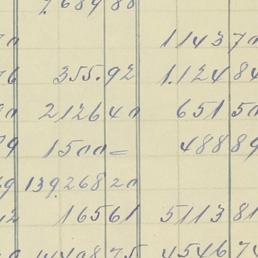 7.689 80
1143 70
76 355.92 1.124 84
212640 651 50
1500= 488 89
139.268 20
165 61 5113 81
4546 74